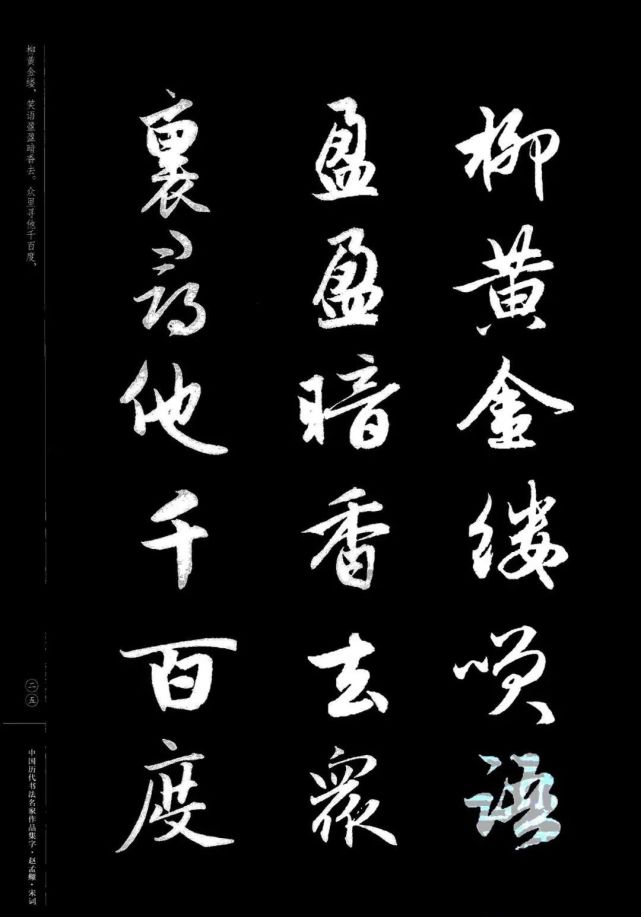 柳黄金缕唉语
盈盈暗香去眾
裏尋他千百度
柳黄金缕，笑语盈盈暗香去。众里寻他千百度，
二五
中国历代书法名家作品集字·赵孟頫·宋词